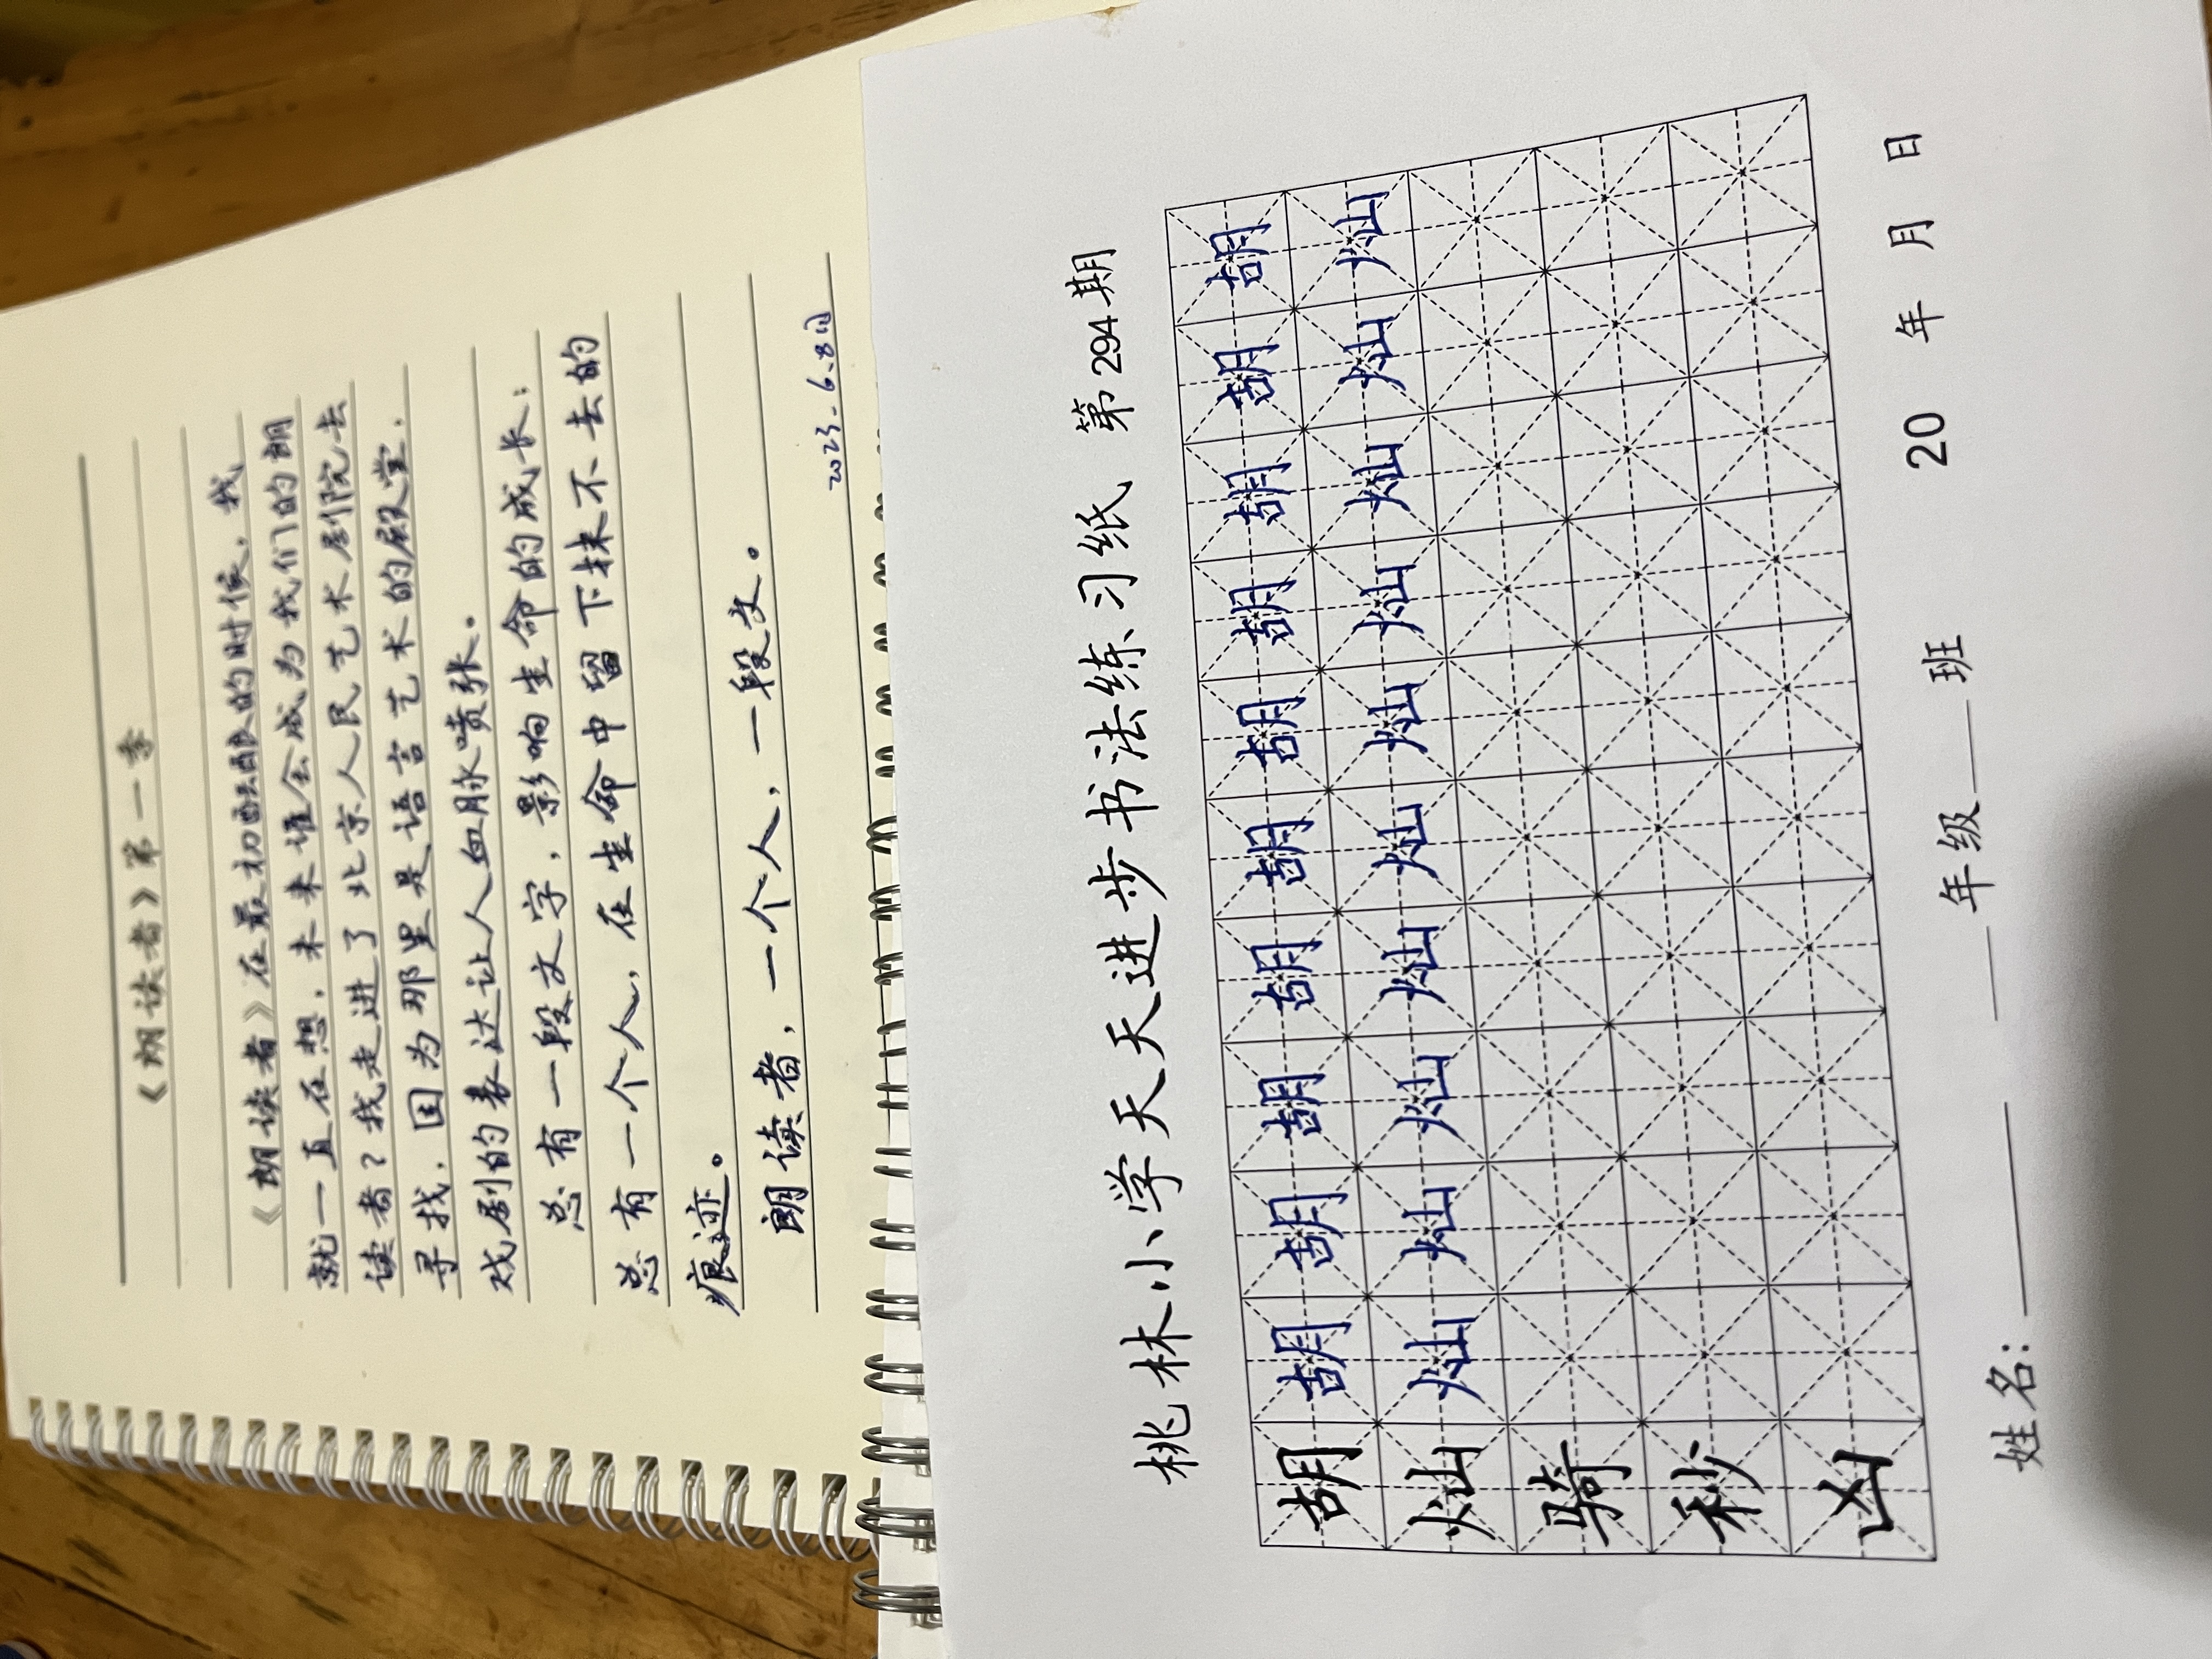 《朗读者》第一季
《朗读者》在最初酝酿的时候，我
就一直在想，未来谁会成为我们的朗
读者？我走进了北京人民艺术剧院去
寻找，因为那里是语言艺术的殿堂，
戏剧的表达让人血脉喷张。
总有一段文字，影响生命的成长；
总有一个人，在生命中留下抹不去的
痕迹。
朗读者，一个人，一段文。
2023.6.8日
桃林小学天天进步书法练习纸 第294期
胡 胡 胡 胡 胡 胡 胡 胡 胡 胡 胡
灿 灿 灿 灿 灿 灿 灿 灿 灿 灿 灿
骑
秒
凶
姓名：______ ___年级___班 20 年 月 日